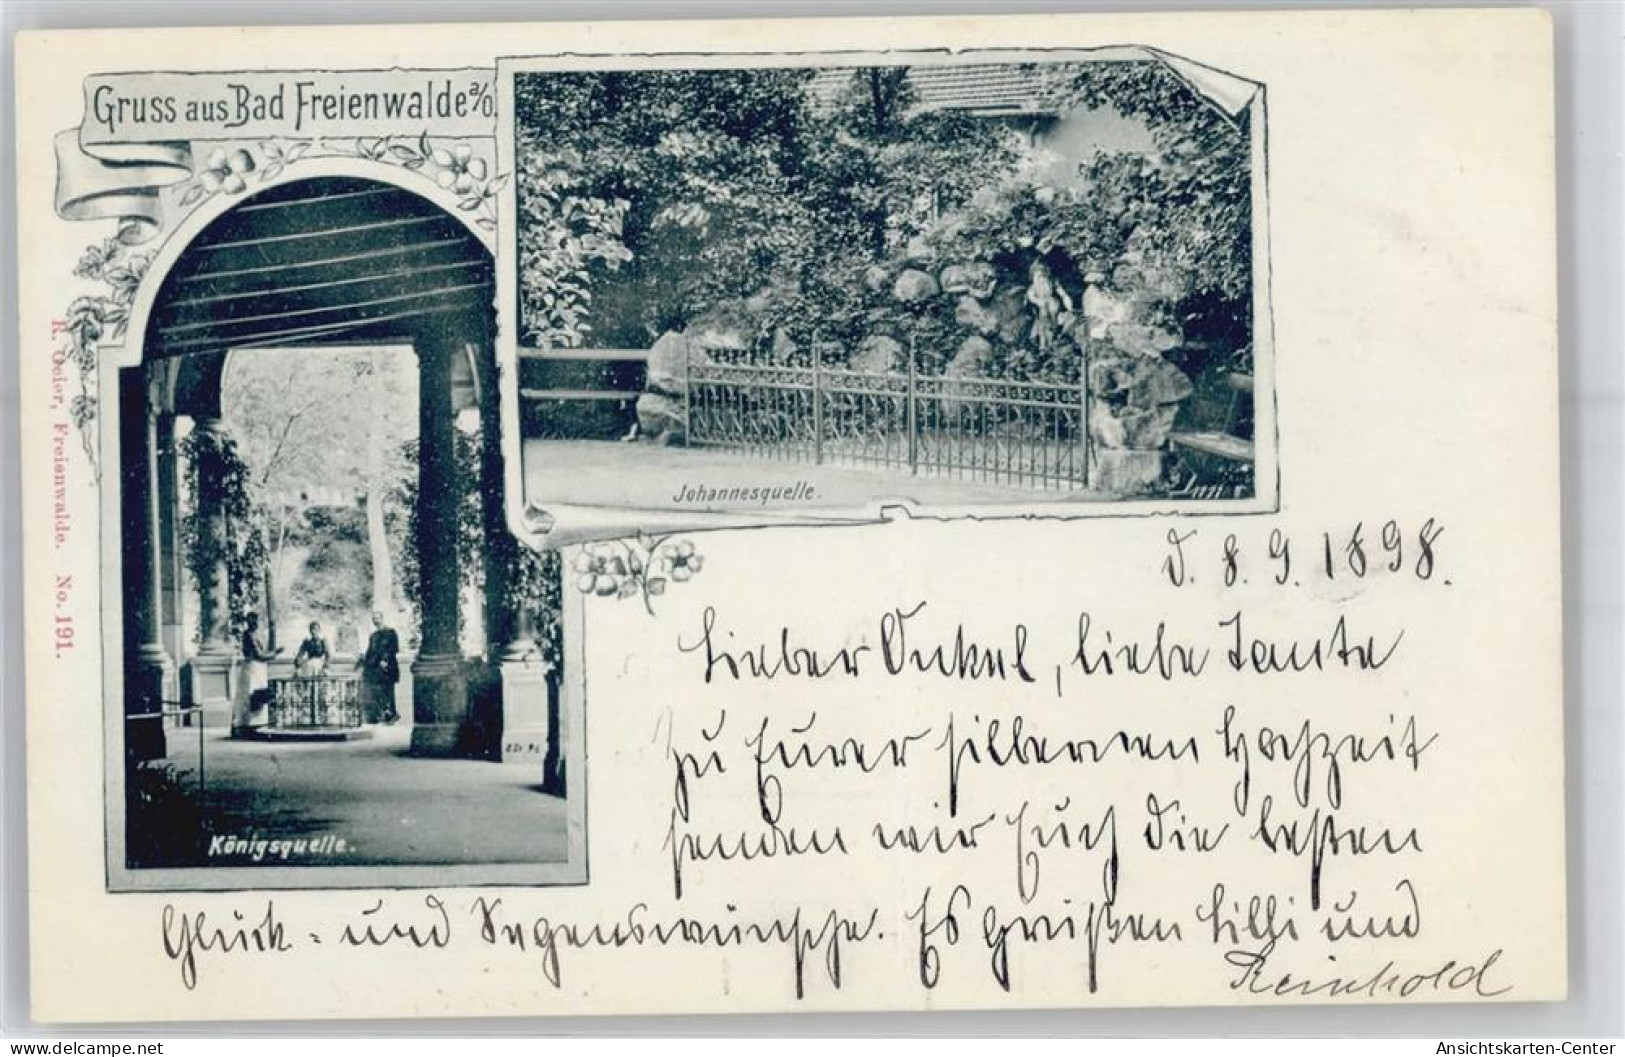 Gruss aus Bad Freienwalde a/O.
Johannesquelle.
Königsquelle.
R. Oeier, Freienwalde. No. 191.
d. 8. 9. 1898.
Lieber Onkel, liebe Tante
Zu Eurer silbernen Hochzeit
senden wir Euch die besten
Glück- und Segenswünsche. Es grüßen Lilli und
Reinhold
akpool.de
Ansichtskarten-Center